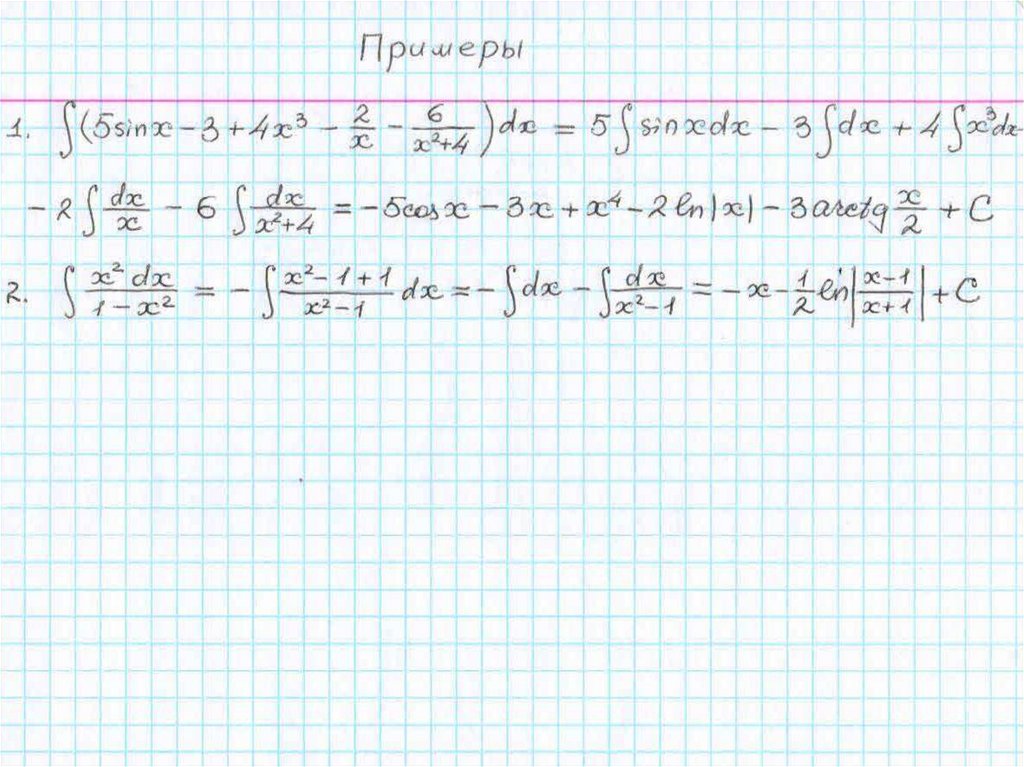 Примеры
1. ∫(5sinx − 3 + 4x³ − 2/x − 6/(x²+4))dx = 5∫sinxdx − 3∫dx + 4∫x³dx
− 2∫dx/x − 6∫dx/(x²+4) = −5cosx − 3x + x⁴ − 2ln|x| − 3arctg x/2 + C
2. ∫x²dx/(1−x²) = −∫(x²−1+1)/(x²−1) dx = −∫dx − ∫dx/(x²−1) = −x − 1/2 ln|(x−1)/(x+1)| + C